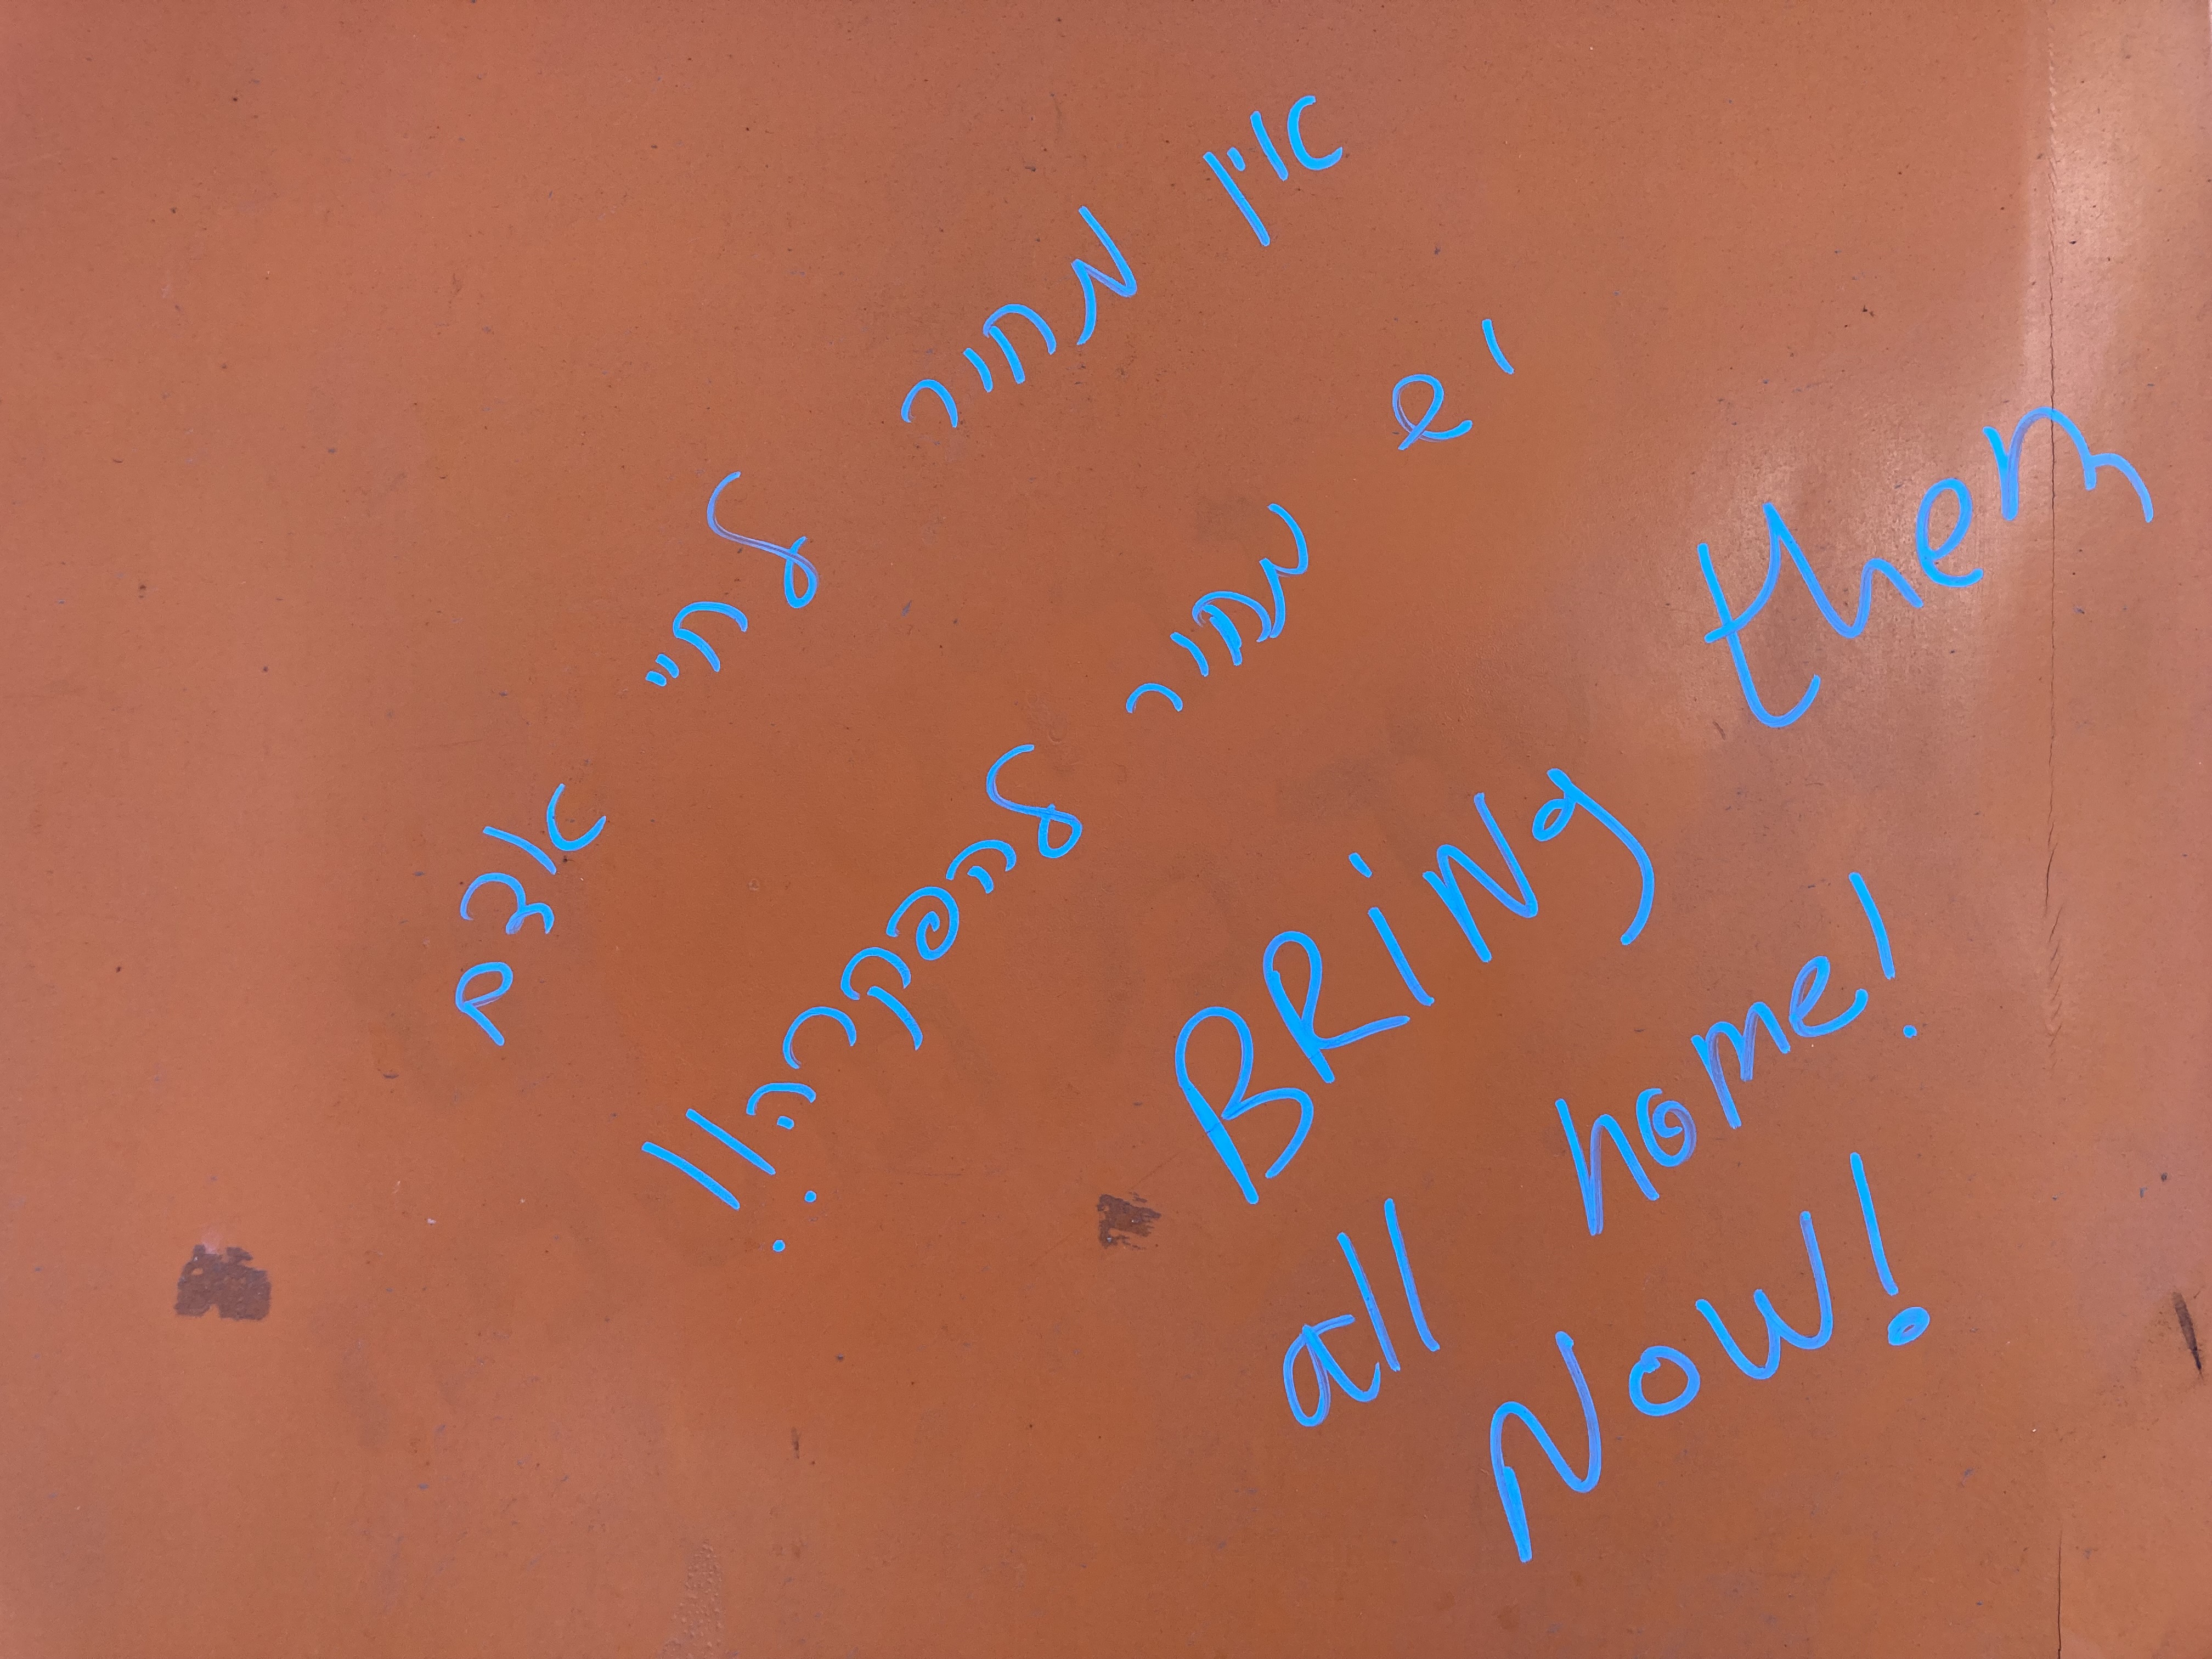 אין מחיר לחיי אדם
יש מחיר להפקרה!!
BRING them
all home!
NOW!